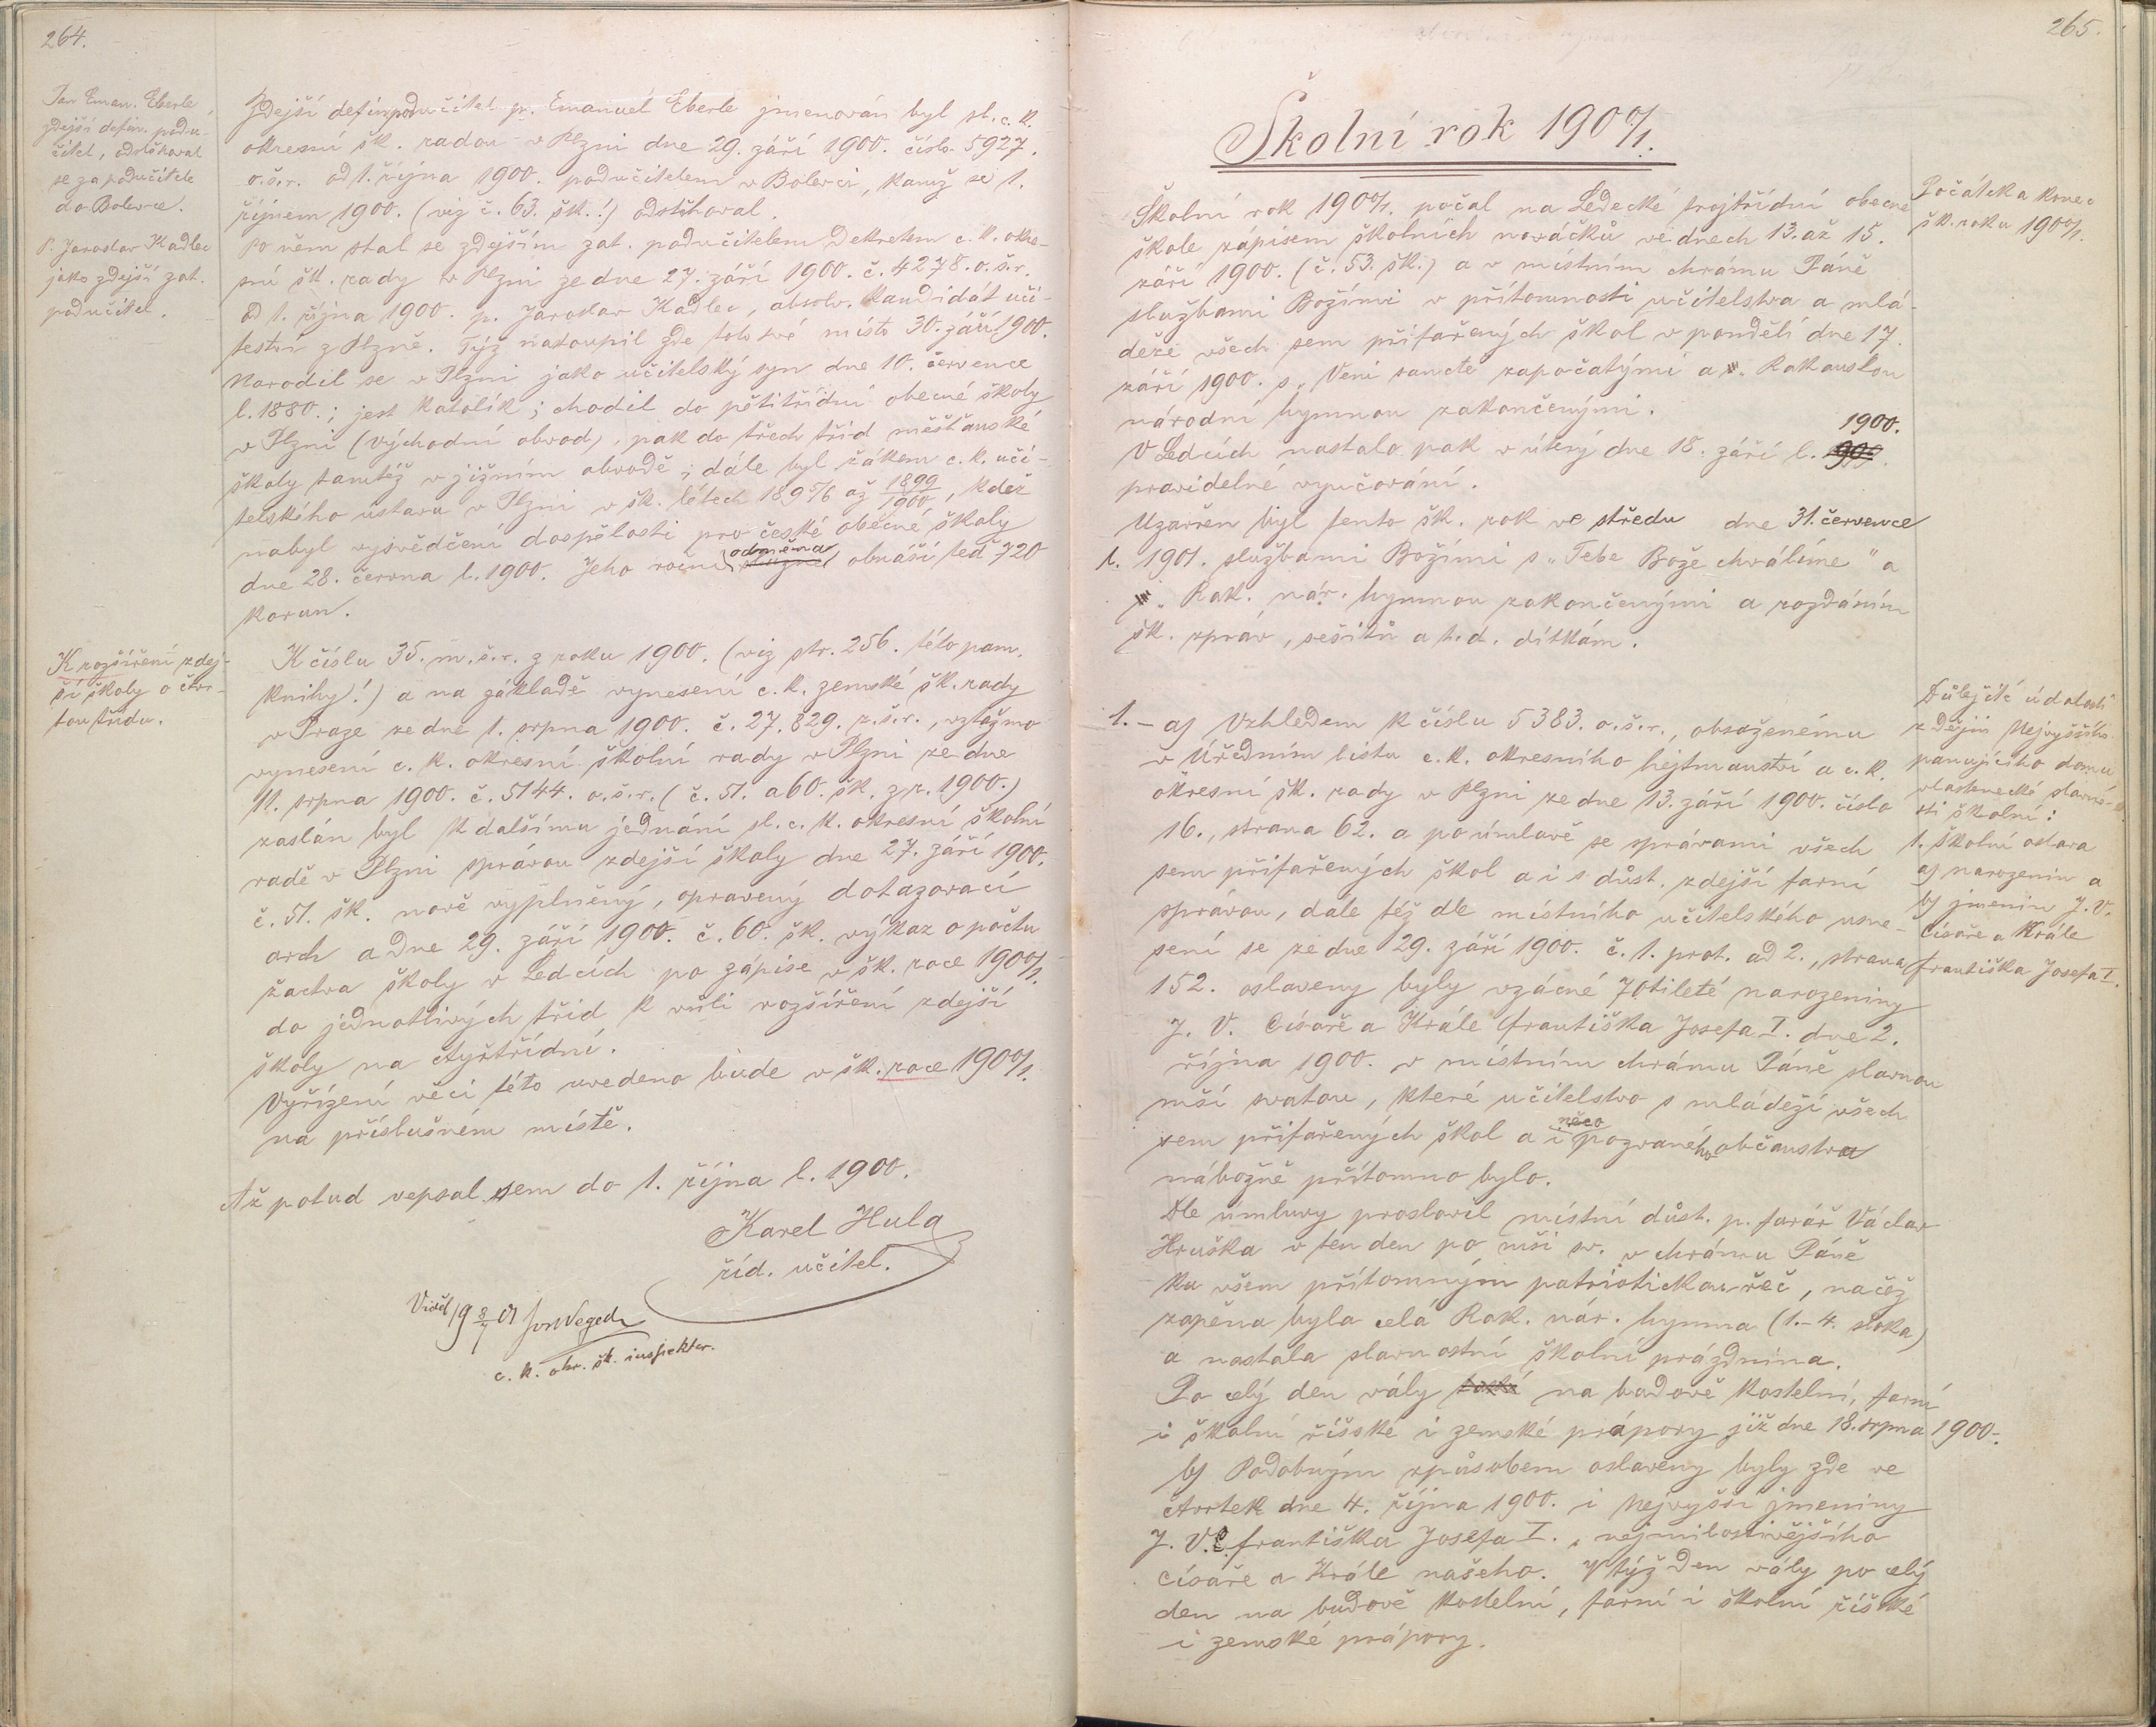 264.
Pan Eman. Eberle,
zdejší defin. podu-
čitel, odstěhoval
se za podučitele
do Bolevce.
P. Jaroslav Kadlec
jako zdejší zat.
podučitel.
Zdejší defin. podučitel p. Emanuel Eberle jmenován byl sl. c. k.
okresní šk. radou v Plzni dne 29. září 1900. číslo 5927.
o.š.r. od 1. října 1900. podučitelem v Bolevci, kamž se 1.
říjnem 1900. (viz č. 63. šk.!) odstěhoval.
Po něm stal se zdejším zat. podučitelem dekretem c. k. okre-
sní šk. rady v Plzni ze dne 27. září 1900. č. 4278. o.š.r.
od 1. října 1900. p. Jaroslav Kadlec, absolv. kandidát uči-
telství z Plzně. Týž nastoupil zde toto své místo 30. září 1900.
Narodil se v Plzni jako učitelský syn dne 10. července
l. 1880.; jest katolík; chodil do pětitřídní obecné školy
v Plzni (východní obvod), pak do třech tříd měšťanské
školy tamtéž v jižním obvodě; dále byl žákem c. k. uči-
telského ústavu v Plzni v šk. létech 1895/6 až 1899/1900, kdež
nabyl vysvědčení dospělosti pro české obecné školy
dne 28. června l. 1900. Jeho roční odměna služné obnáší teď 720
korun.
K rozšíření zdej-
ší školy o čtvr-
tou třídu.
K číslu 35. m.š.r. z roku 1900. (viz str. 256. této pam.
knihy!) a na základě vynesení c. k. zemské šk. rady
v Praze ze dne 1. srpna 1900. č. 27.829. z.š.r., vztažmo
vynesení c. k. okresní školní rady v Plzni ze dne
11. srpna 1900. č. 5144. o.š.r. (č. 51. a 60. šk. z r. 1900.)
zaslán byl k dalšímu jednání sl. c. k. okresní školní
radě v Plzni správou zdejší školy dne 27. září 1900.
č. 51. šk. nově vyplněný, opravený dotazovací
arch a dne 29. září 1900. č. 60. šk. výkaz o počtu
žactva školy v Ledcích po zápise v šk. roce 1900/1.
do jednotlivých tříd k vůli rozšíření zdejší
školy na čtyřtřídní.
Vyřízení věci této uvedeno bude v šk. roce 1900/1.
na příslušném místě.
Až potud vepsal jsem do 1. října l. 1900.
Karel Hula
říd. učitel.
Viděl 19 8/7 01
c. k. okr. šk. inspektor.
265.
Školní rok 1900/1.
Počátek a konec
šk. roku 1900/1.
Školní rok 1900/1. počal na Ledecké trojtřídní obecné
škole zápisem školních nováčků ve dnech 13. až 15.
září 1900. (č. 53. šk.) a v místním chrámu Páně
službami Božími v přítomnosti učitelstva a mlá-
deže všech sem přifařených škol v pondělí dne 17.
září 1900. s „Veni sancte započatými a „Rakouskou
národní hymnou zakončenými.
V Ledcích nastalo pak v úterý dne 18. září l. 1900.
pravidelné vyučování.
Uzavřen byl tento šk. rok ve středu dne 31. července
l. 1901. službami Božími s „Tebe Bože chválíme" a
„Rak. nár. hymnou zakončenými a rozdáním
šk. zpráv, sešitů a t. d. dítkám.
Důležité události
z dějin Nejvyššího
panujícího domu,
vlastenecké slavno-
sti školní:
1. Školní oslava
a) narozenin a
b) jmenin J. V.
Císaře a Krále
Františka Josefa I.
1.- a) Vzhledem k číslu 5383. o.š.r., obsaženému
v Úředním listu c. k. okresního hejtmanství a c. k.
okresní šk. rady v Plzni ze dne 13. září 1900. číslo
16., strana 62. a po úmluvě se správami všech
sem přifařených škol a i s důst. zdejší farní
správou, dále též dle místního učitelského usne-
sení se ze dne 29. září 1900. č. 1. prot. ad 2., strana
152. oslaveny byly vzácné 70tileté narozeniny
J. V. Císaře a Krále Františka Josefa I. dne 2.
října 1900. v místním chrámu Páně slavnou
mší svatou, které učitelstvo s mládeží všech
sem přifařených škol a i něco pozvaného občanstva
nábožně přítomno bylo.
Dle úmluvy proslovil místní důst. p. farář Václav
Hruška v ten den po mši sv. v chrámu Páně
ku všem přítomným patriotickou řeč, načež
zapěna byla celá Rak. nár. hymna (1.-4. sloka)
a nastala slavnostní školní prázdnina.
Po celý den vály na budově kostelní, farní
i školní říšské i zemské prápory již dne 18. srpna 1900.
b) Podobným způsobem oslaveny byly zde ve
čtvrtek dne 4. října 1900. i Nejvyšší jmeniny
J. V. C. Františka Josefa I., nejmilostivějšího
císaře a Krále našeho. V týž den vály po celý
den na budově kostelní, farní i školní říšské
i zemské prápory.